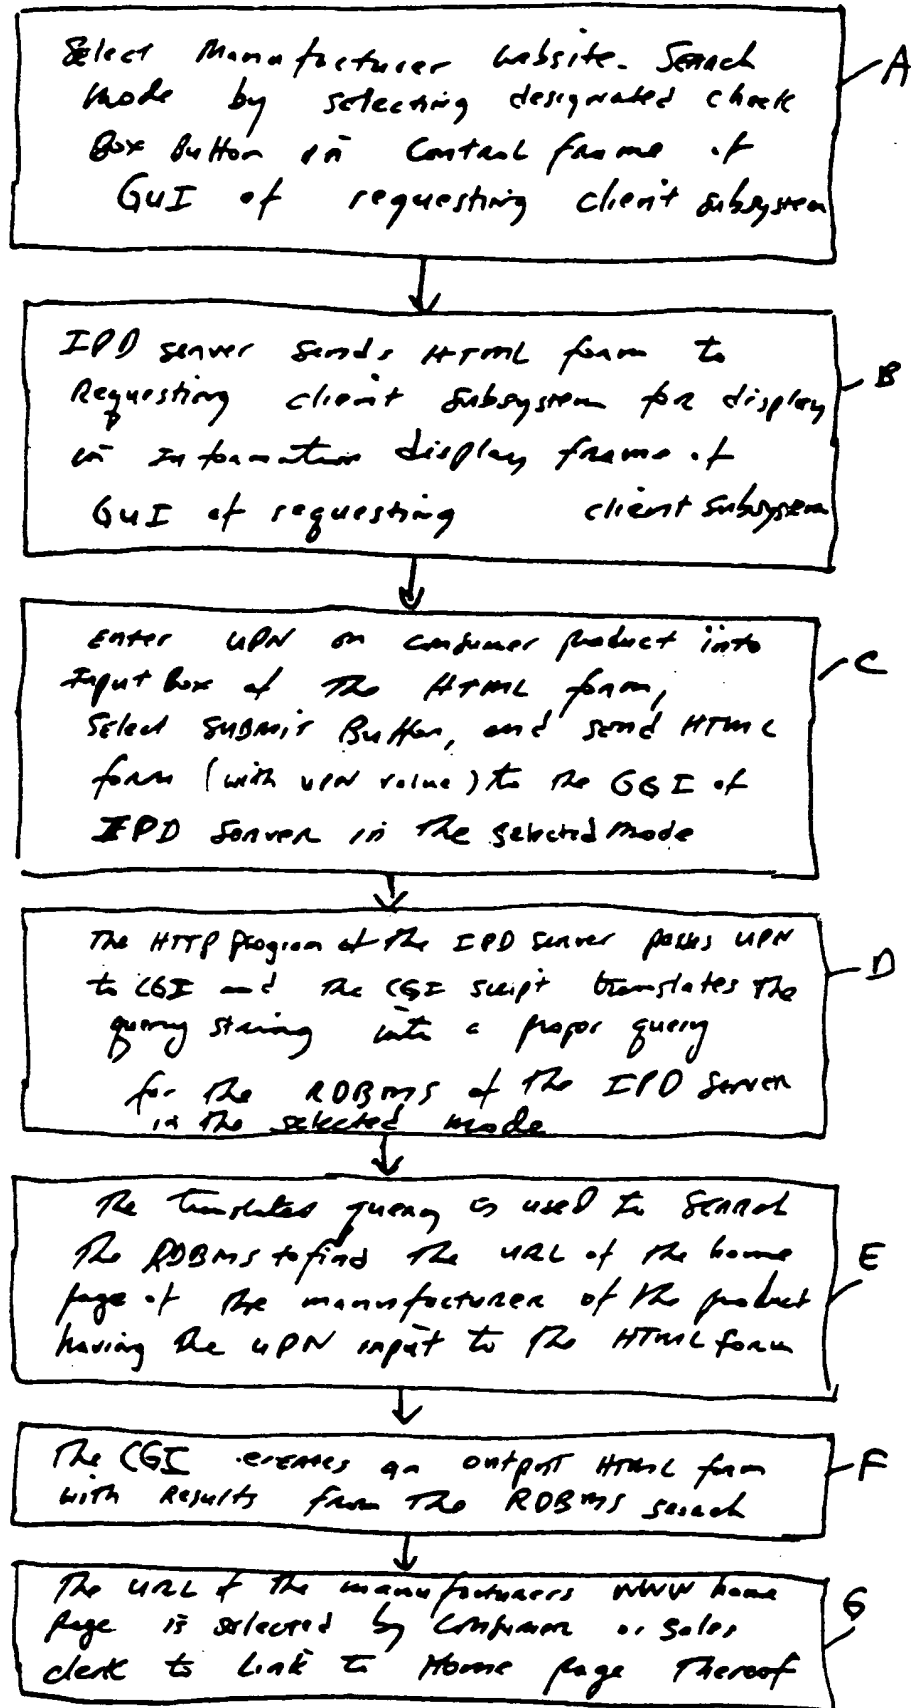 Select Manufacturer Website Search
Mode by selecting designated check
Box Button in Control frame of
GUI of requesting client subsystem
A
IPD server sends HTML form to
Requesting client subsystem for display
in Information display frame of
GUI of requesting client subsystem
B
Enter UPN on consumer product into
Input Box of The HTML form,
Select SUBMIT Button, and send HTML
form (with UPN value) to the CGI of
IPD Server in The selected Mode
C
The HTTP program of the IPD Server passes UPN
to CGI and The CGI script translates The
query string into a proper query
for The RDBMS of The IPD Server
in The selected mode
D
The translated query is used to Search
The RDBMS to find The URL of The home
page of The manufacturer of The product
having The UPN input to The HTML form
E
The CGI creates an output HTML form
with Results from The RDBMS search
F
The URL of The manufacturers WWW home
Page is selected by Consumer or sales
clerk to Link to Home page Thereof
G